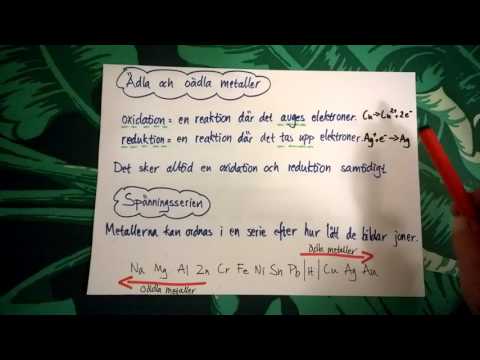 Ädla och oädla metaller
oxidation = en reaktion där det avges elektroner. Cu→Cu²⁺+2e⁻
reduktion = en reaktion där det tas upp elektroner. Ag⁺+e⁻→Ag
Det sker alltid en oxidation och reduktion samtidigt
Spänningsserien
Metallerna kan ordnas i en serie efter hur lätt de bildar joner.
ädla metaller
Na Mg Al Zn Cr Fe Ni Sn Pb |H| Cu Ag Au
oädla metaller